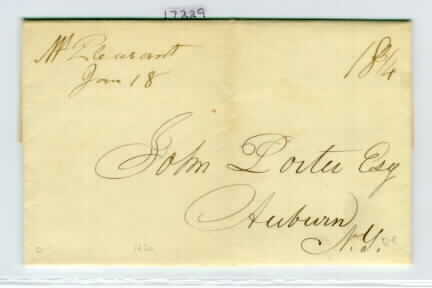 17229
Mt Pleasant
Jan 18
18 3/4
John Porter Esq
Auburn
N.Y.